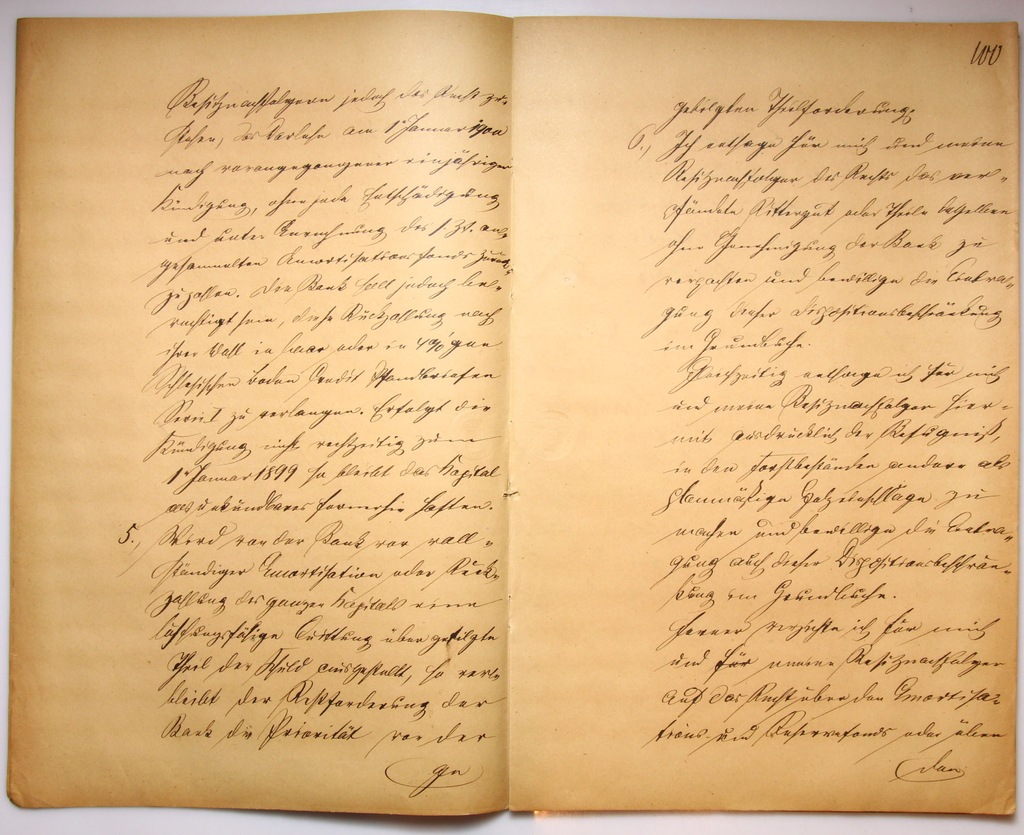 Besitznachfolgern jedoch das Recht zu-
stehen, das Darlehn am 1t Januar 1900
nach vorangegangener einjähriger
Kündigung, ohne jede Entschädigung
und unter Anrechnung des s. Zt. an-
gesammelten Amortisationsfonds zurück-
zuzahlen. Die Bank soll jedoch be-
rechtigt sein, diese Rückzahlung nach
ihrer Wahl in baar oder in 4%
Schlesischen Boden Credit Pfandbriefen
Serie I zu verlangen. Erfolgt die
Kündigung nicht rechtzeitig zum
1t Januar 1899 so bleibt das Kapital
als unkündbares fernerhin haften.
5., Wird von der Bank vor voll-
ständiger Amortisation oder Rück-
zahlung des ganzen Kapitals eine
löschungsfähige Quittung über getilgte
Theil der Schuld ausgestellt, so ver-
bleibt der Restforderung der
Bank die Priorität vor der
ge
100
getilgten Theilforderung.
6., Ich entsage für mich und meine
Besitznachfolger des Rechts das ver-
pfändete Rittergut oder Theile desselben
ohne Genehmigung der Bank zu
verpachten und bewillige die Eintra-
gung dieser Dispositionsbeschränkung
im Grundbuche.
Gleichzeitig entsage ich für mich
und meine Besitznachfolger hier-
mit ausdrücklich der Befugniß,
in den Forstbeständen andere als
planmäßige Holzeinschläge zu
machen und bewillige die Eintra-
gung auch dieser Dispositionsbeschrän-
kung im Grundbuche.
Ferner verzichte ich für mich
und für meine Besitznachfolger
auf das Recht über den Amortisa-
tions- und Reservefonds oder über
den